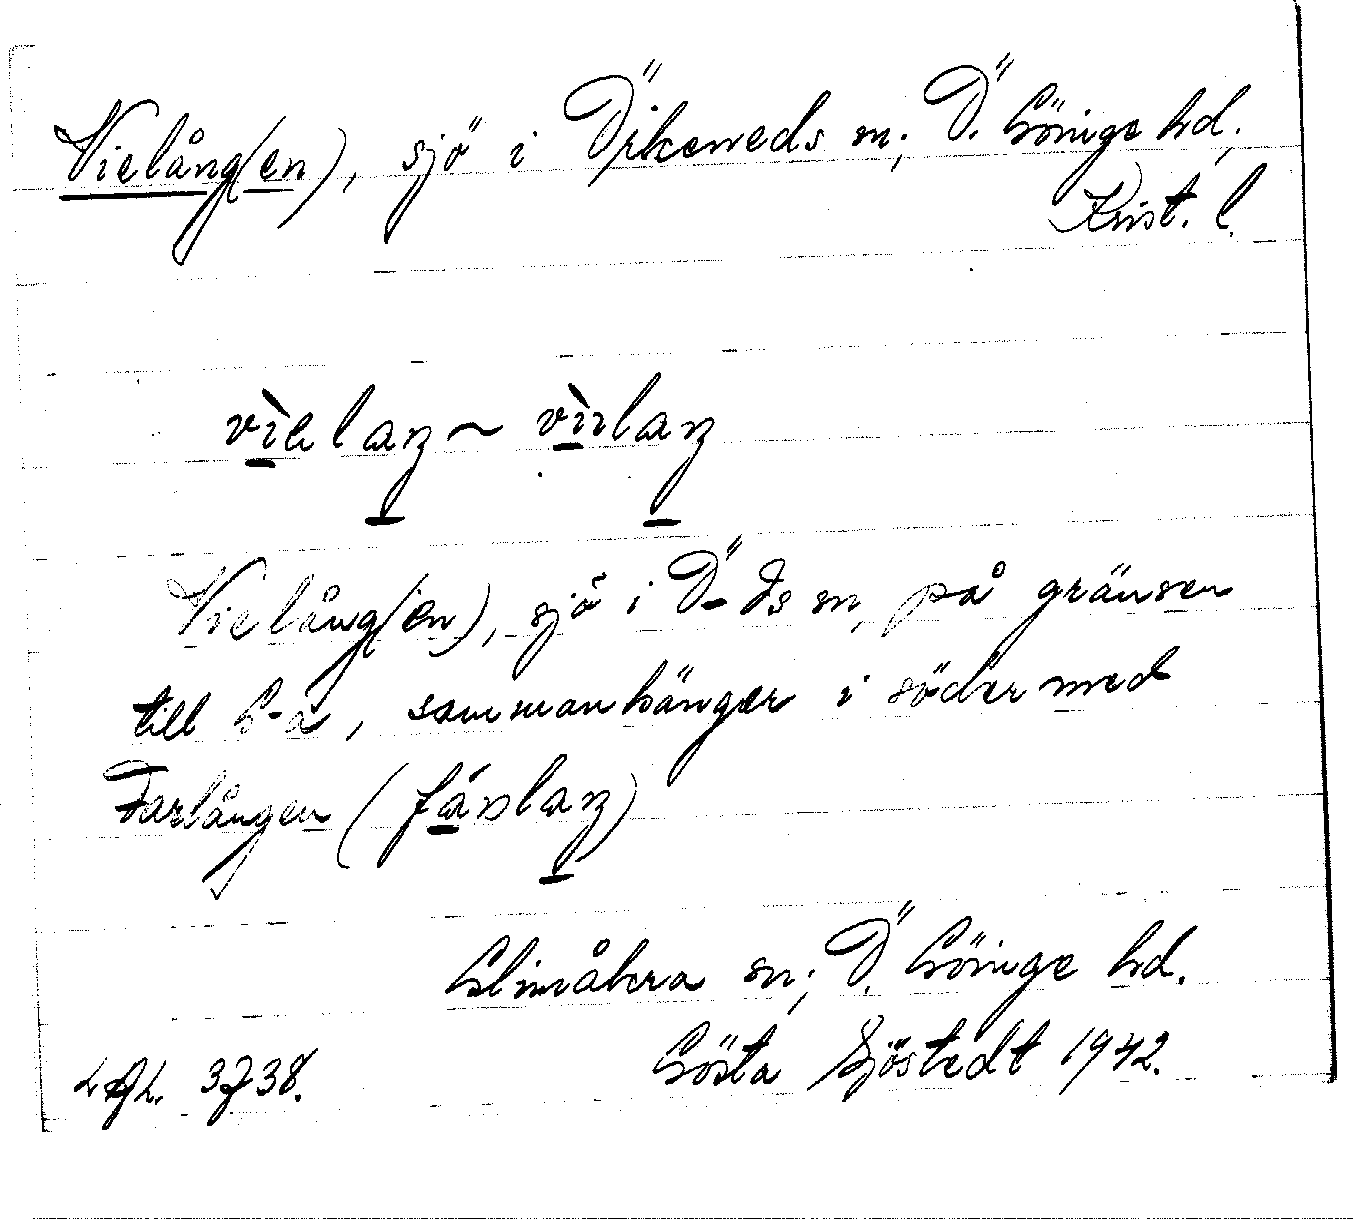 Vielång(en), sjö i Örkeneds sn; Ö. Göinge hd,
Krist. l.
vìelaŋ ~ vìrlaŋ
Vielång(en), sjö i Ö-ds sn, på gränsen
till G-a, sammanhänger i söder med
Farlången (fárlaŋ)
Glimåkra sn; Ö. Göinge hd.
Gösta Sjöstedt 1942.
3738.